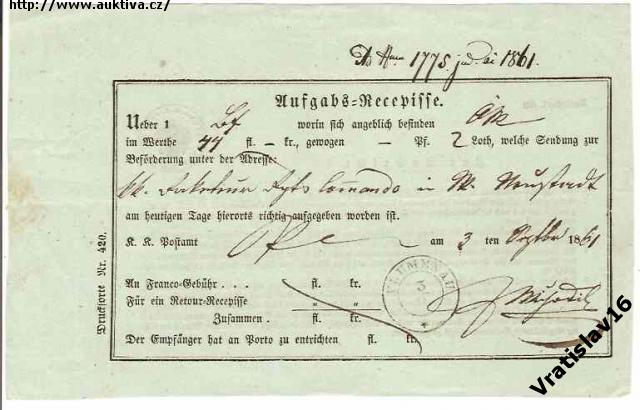 http://www.auktiva.cz/
1775 1861.
Aufgabs-Recepisse.
Ueber 1 Bf worin sich angeblich befinden
im Werthe 44 fl. – kr., gewogen – Pf. 2 Loth, welche Sendung zur
Beförderung unter der Adresse:
Commando in W. Neustadt
am heutigen Tage hierorts richtig aufgegeben worden ist.
K. K. Postamt am 3 ten 1861
An Franco-Gebühr . . . fl. kr.
Für ein Retour-Recepisse " "
Zusammen . fl. kr.
Der Empfänger hat an Porto zu entrichten fl. kr.
Drucksorte Nr. 420.
BLUMENAU
3
Vratislav16